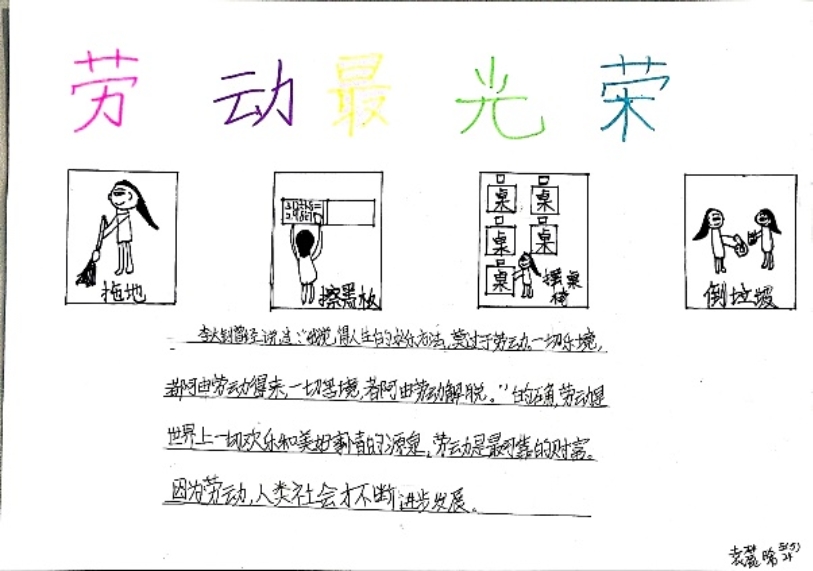 劳动最光荣
拖地
擦黑板
桌 桌
桌 桌
桌
摆桌椅
倒垃圾
李大钊曾经说过："我觉得人生的求乐方法,莫过于劳动。一切乐境,
都可由劳动得来,一切苦境,都可由劳动解脱。"的确,劳动是
世界上一切欢乐和美好事情的源泉,劳动是最可靠的财富。
因为劳动,人类社会才不断进步发展。